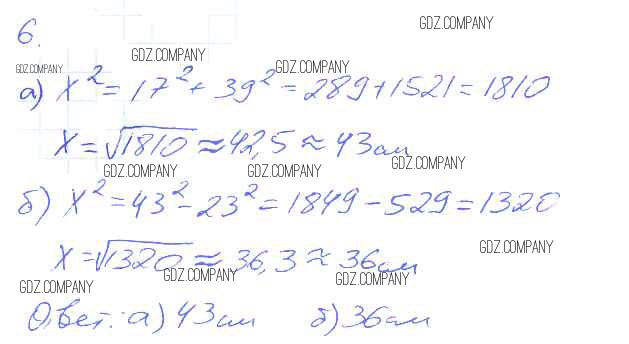 6.
GDZ.COMPANY
GDZ.COMPANY
GDZ.COMPANY
GDZ.COMPANY
а) x² = 17² + 39² = 289 + 1521 = 1810
x = √1810 ≈ 42,5 ≈ 43см
GDZ.COMPANY
GDZ.COMPANY
GDZ.COMPANY
б) x² = 43² - 23² = 1849 - 529 = 1320
GDZ.COMPANY
x = √1320 ≈ 36,3 ≈ 36см
GDZ.COMPANY
GDZ.COMPANY
GDZ.COMPANY
Ответ: а) 43см б) 36см